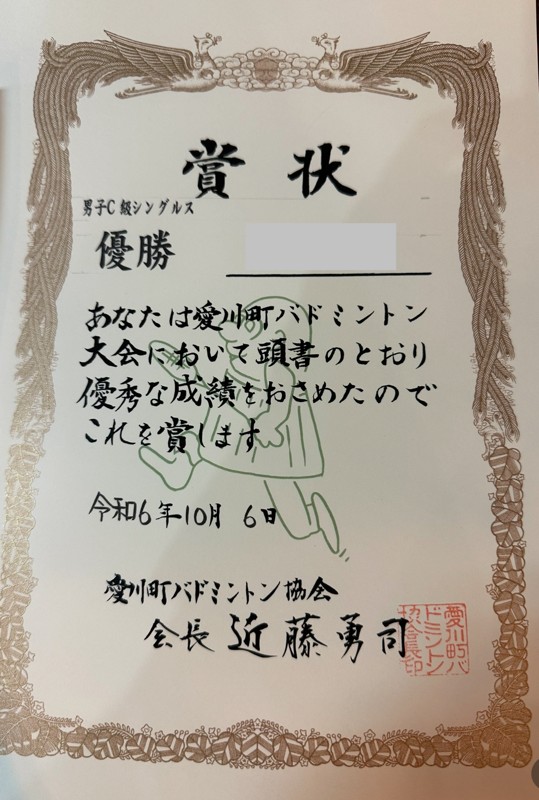 賞状
男子C級シングルス
優勝
あなたは愛川町バドミントン
大会において頭書のとおり
優秀な成績をおさめたので
これを賞します
令和6年10月6日
愛川町バドミントン協会
会長 近藤勇司
愛川町バ
ドミントン
協会長印